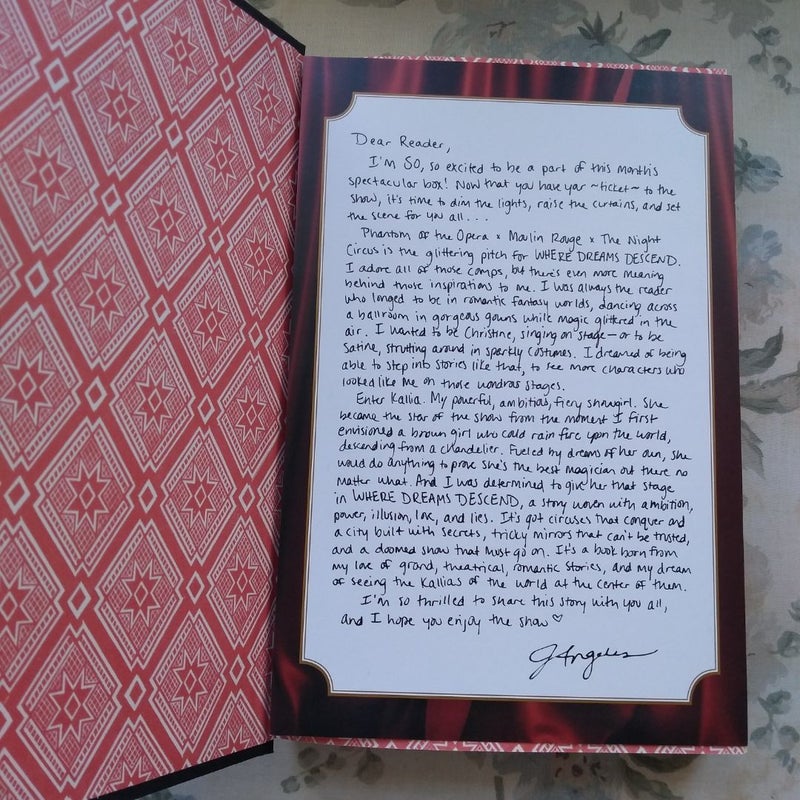 Dear Reader,
I'm SO, so excited to be a part of this month's
spectacular box! Now that you have your ~ticket~ to the
show, it's time to dim the lights, raise the curtains, and set
the scene for you all...
Phantom of the Opera × Moulin Rouge × The Night
Circus is the glittering pitch for WHERE DREAMS DESCEND.
I adore all of those comps, but there's even more meaning
behind those inspirations to me. I was always the reader
who longed to be in romantic fantasy worlds, dancing across
a ballroom in gorgeous gowns while magic glittered in the
air. I wanted to be Christine, singing on stage—or to be
Satine, strutting around in sparkly costumes. I dreamed of being
able to step into stories like that, to see more characters who
looked like me on those wondrous stages.
Enter Kallia. My powerful, ambitious, fiery showgirl. She
became the star of the show from the moment I first
envisioned a brown girl who could rain fire upon the world,
descending from a chandelier. Fueled by dreams of her own, she
would do anything to prove she's the best magician out there no
matter what. And I was determined to give her that stage
in WHERE DREAMS DESCEND, a story woven with ambition,
power, illusion, love, and lies. It's got circuses that conquer and
a city built with secrets, tricky mirrors that can't be trusted,
and a doomed show that must go on. It's a book born from
my love of grand, theatrical, romantic stories, and my dream
of seeing the Kallias of the world at the center of them.
I'm so thrilled to share this story with you all,
and I hope you enjoy the show ♡
J Angeles